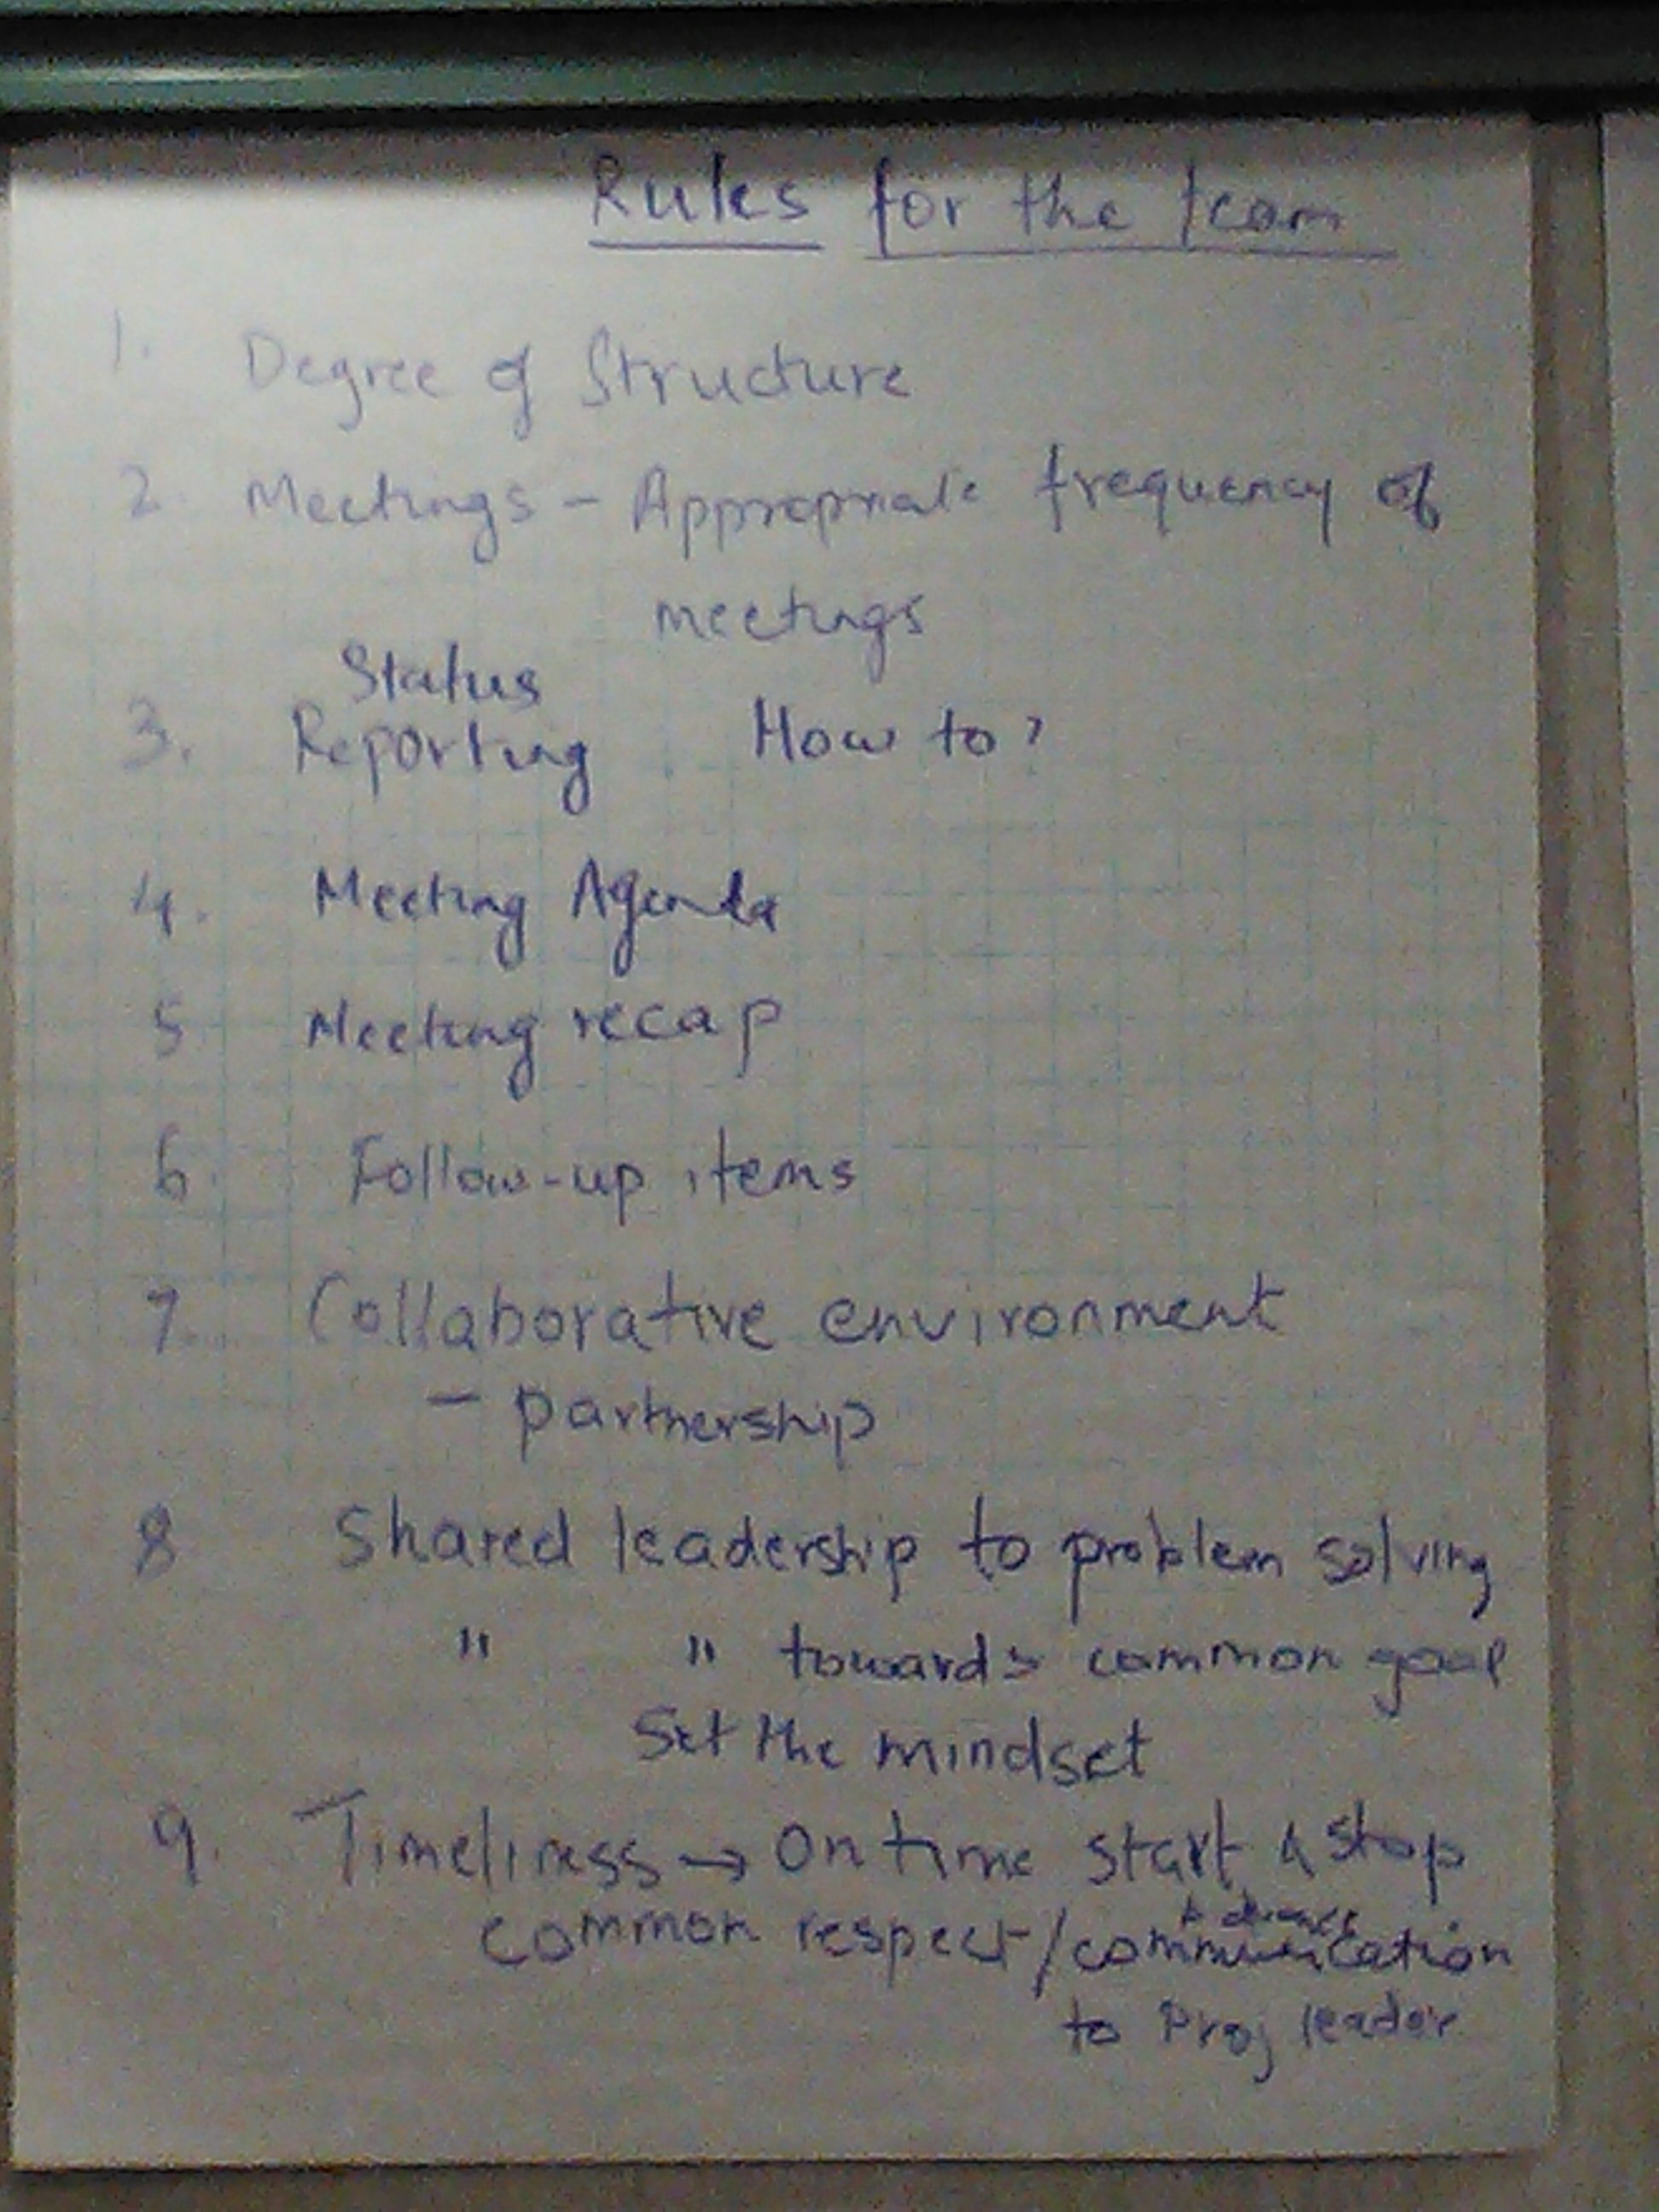 Rules for the team
1. Degree of Structure
2. Meetings - Appropriate frequency of
meetings
Status
3. Reporting How to?
4. Meeting Agenda
5 Meeting recap
6. Follow-up items
7. Collaborative environment
- partnership
8 Shared leadership to problem solving
" " towards common goal
Set the mindset
9. Timeliness → On time start & stop
common respect/communication
to Proj leader